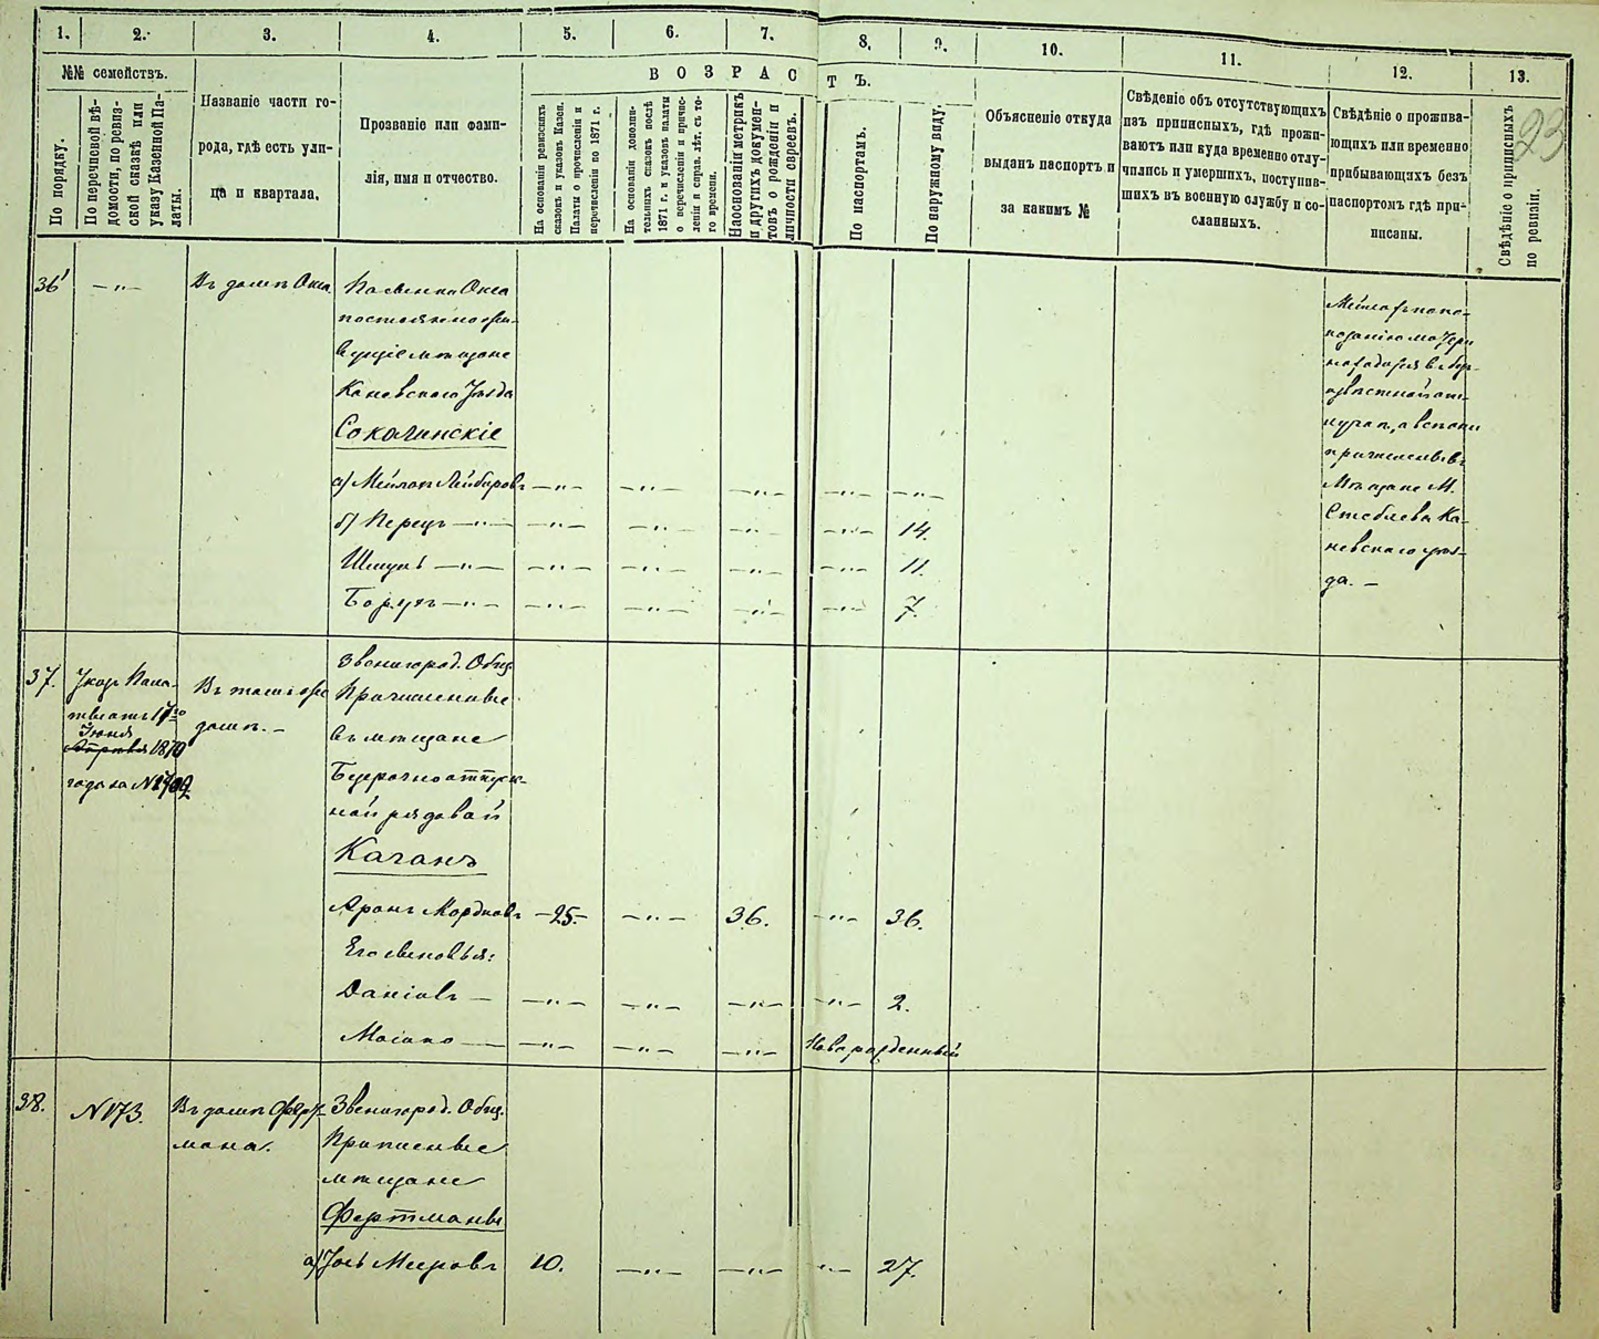 1. 2. 3. 4. 5. 6. 7. 8. 9. 10. 11. 12. 13.
№№ семействъ.
По порядку.
По перечневой вѣ-
домости, по ревиз-
ской сказкѣ или
указу Казенной Па-
латы.
Названіе части го-
рода, гдѣ есть ули-
ца и квартала.
Прозваніе или фами-
лія, имя и отчество.
ВОЗРАСТЪ.
На основаніи ревизскихъ
сказокъ и указовъ Казен.
Палаты о причисленіи и
перечисленіи по 1871 г.
На основаніи дополни-
тельныхъ сказокъ послѣ
1871 г. и указовъ палаты
о перечисленіи и причис-
леніи и справ. лѣт. съ то-
го времени.
На основаніи метрикъ
и другихъ докумен-
товъ о рожденіи и
личности евреевъ.
По паспортамъ.
По наружному виду.
Объясненіе откуда
выданъ паспортъ и
за какимъ №
Свѣденіе объ отсутствующихъ
изъ приписныхъ, гдѣ прожи-
ваютъ или куда временно отлу-
чились и умершихъ, поступив-
шихъ въ военную службу и со-
сланныхъ.
Свѣдѣніе о прожива-
ющихъ или временно
прибывающихъ безъ
паспортомъ гдѣ при-
писаны.
Свѣдѣніе о приписныхъ
по ревизіи.
23
36 — „ — Въ домѣ Окса
Окса
постоянно жи-
вущіе мѣщане
Каневского Уѣзда
Соколинскіе
а) Лейбировъ — „ — — „ — — „ — — „ — — „ —
б) Перецъ — „ — — „ — — „ — — „ — — „ — 14.
Шмуль — „ — — „ — — „ — — „ — — „ — 11.
Борухъ — „ — — „ — — „ — — „ — — „ — 7.
Мѣщане М.
Стеблева Ка-
невскаго уѣз-
да. —
37. Указъ Пала-
ты отъ 17го
Іюня
1870
года за №
Въ томъ же
домѣ. —
Звенигород. Общ.
Причисленные
въ мѣщане
Безсрочноотпуск-
ной рядовой
Каганъ
Аронъ Мордковъ —25.— — „ — 36. — „ — 36.
Его сыновья:
Даніовъ — — „ — — „ — — „ — — „ — 2.
Мошко — — „ — — „ — — „ — Новорожденный
38. №173. Въ домѣ Ферт-
мана.
Звенигород. Общ.
Приписные
мѣщане
Фертманы
а) Іось Мееровъ 10. — „ — — „ — — „ — 27.